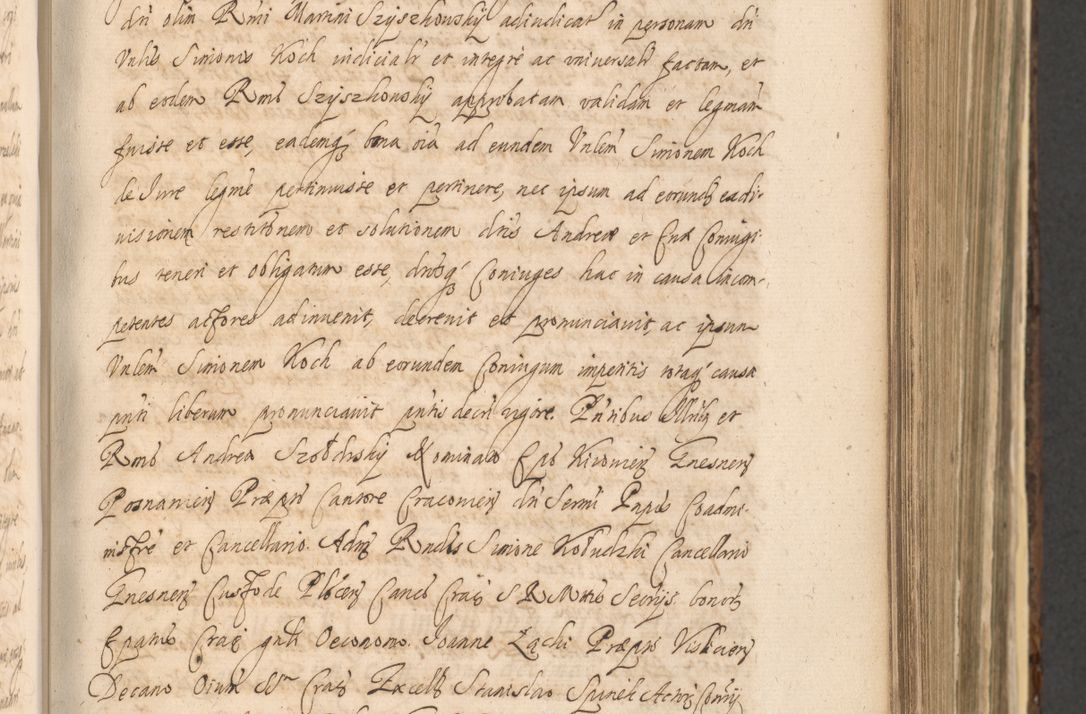 dñ olim Rmi Martini Szyszkowsky adiudicat in personam dñ
Vnlis Simonis Koch iudicialr et integrè ac vniversalr factam, et
ab eodem Rmo Szyszkowsky approbatam validam et legmam
fuisse et esse, eademq bona oia ad eundem Vnlem Simonem Koch
de Jure legme pertinuisse et pertinere, nec ipsum ad eorundem eadi-
uisionem restitonem et solutionem dris Andreæ et Euæ Coniugi
bus teneri et obligatum esse, dictosq Coniuges hac in causa incom-
petentes actores adinuenit, decreuit et pronunciauit, ac ipsum
Vnlem Simonem Koch ab eorundem Coniugum impetitis totaq causa
pnti liberum pronunciauit pntis decri vigore. Pntibus Illri et
Rmo Andrea Szołdrsky Nominato Epo Kiouien Gnesnen
Posnanien Præpto Cantore Cracouien dñ Sermi Pnpis Coadmi-
nistre et Cancellario. Adm Rndis Simone Kołudzki Cancellario
Gnesnen Custode Plocen Canco Crac S R Mttis Secrijs bonor
Epatus Crac gnli Oeconomo. Joanne Zącki Præpto Vislicien
Decano Oium SSrm Crac Excell Stanislao Spinek Actor Cosrij